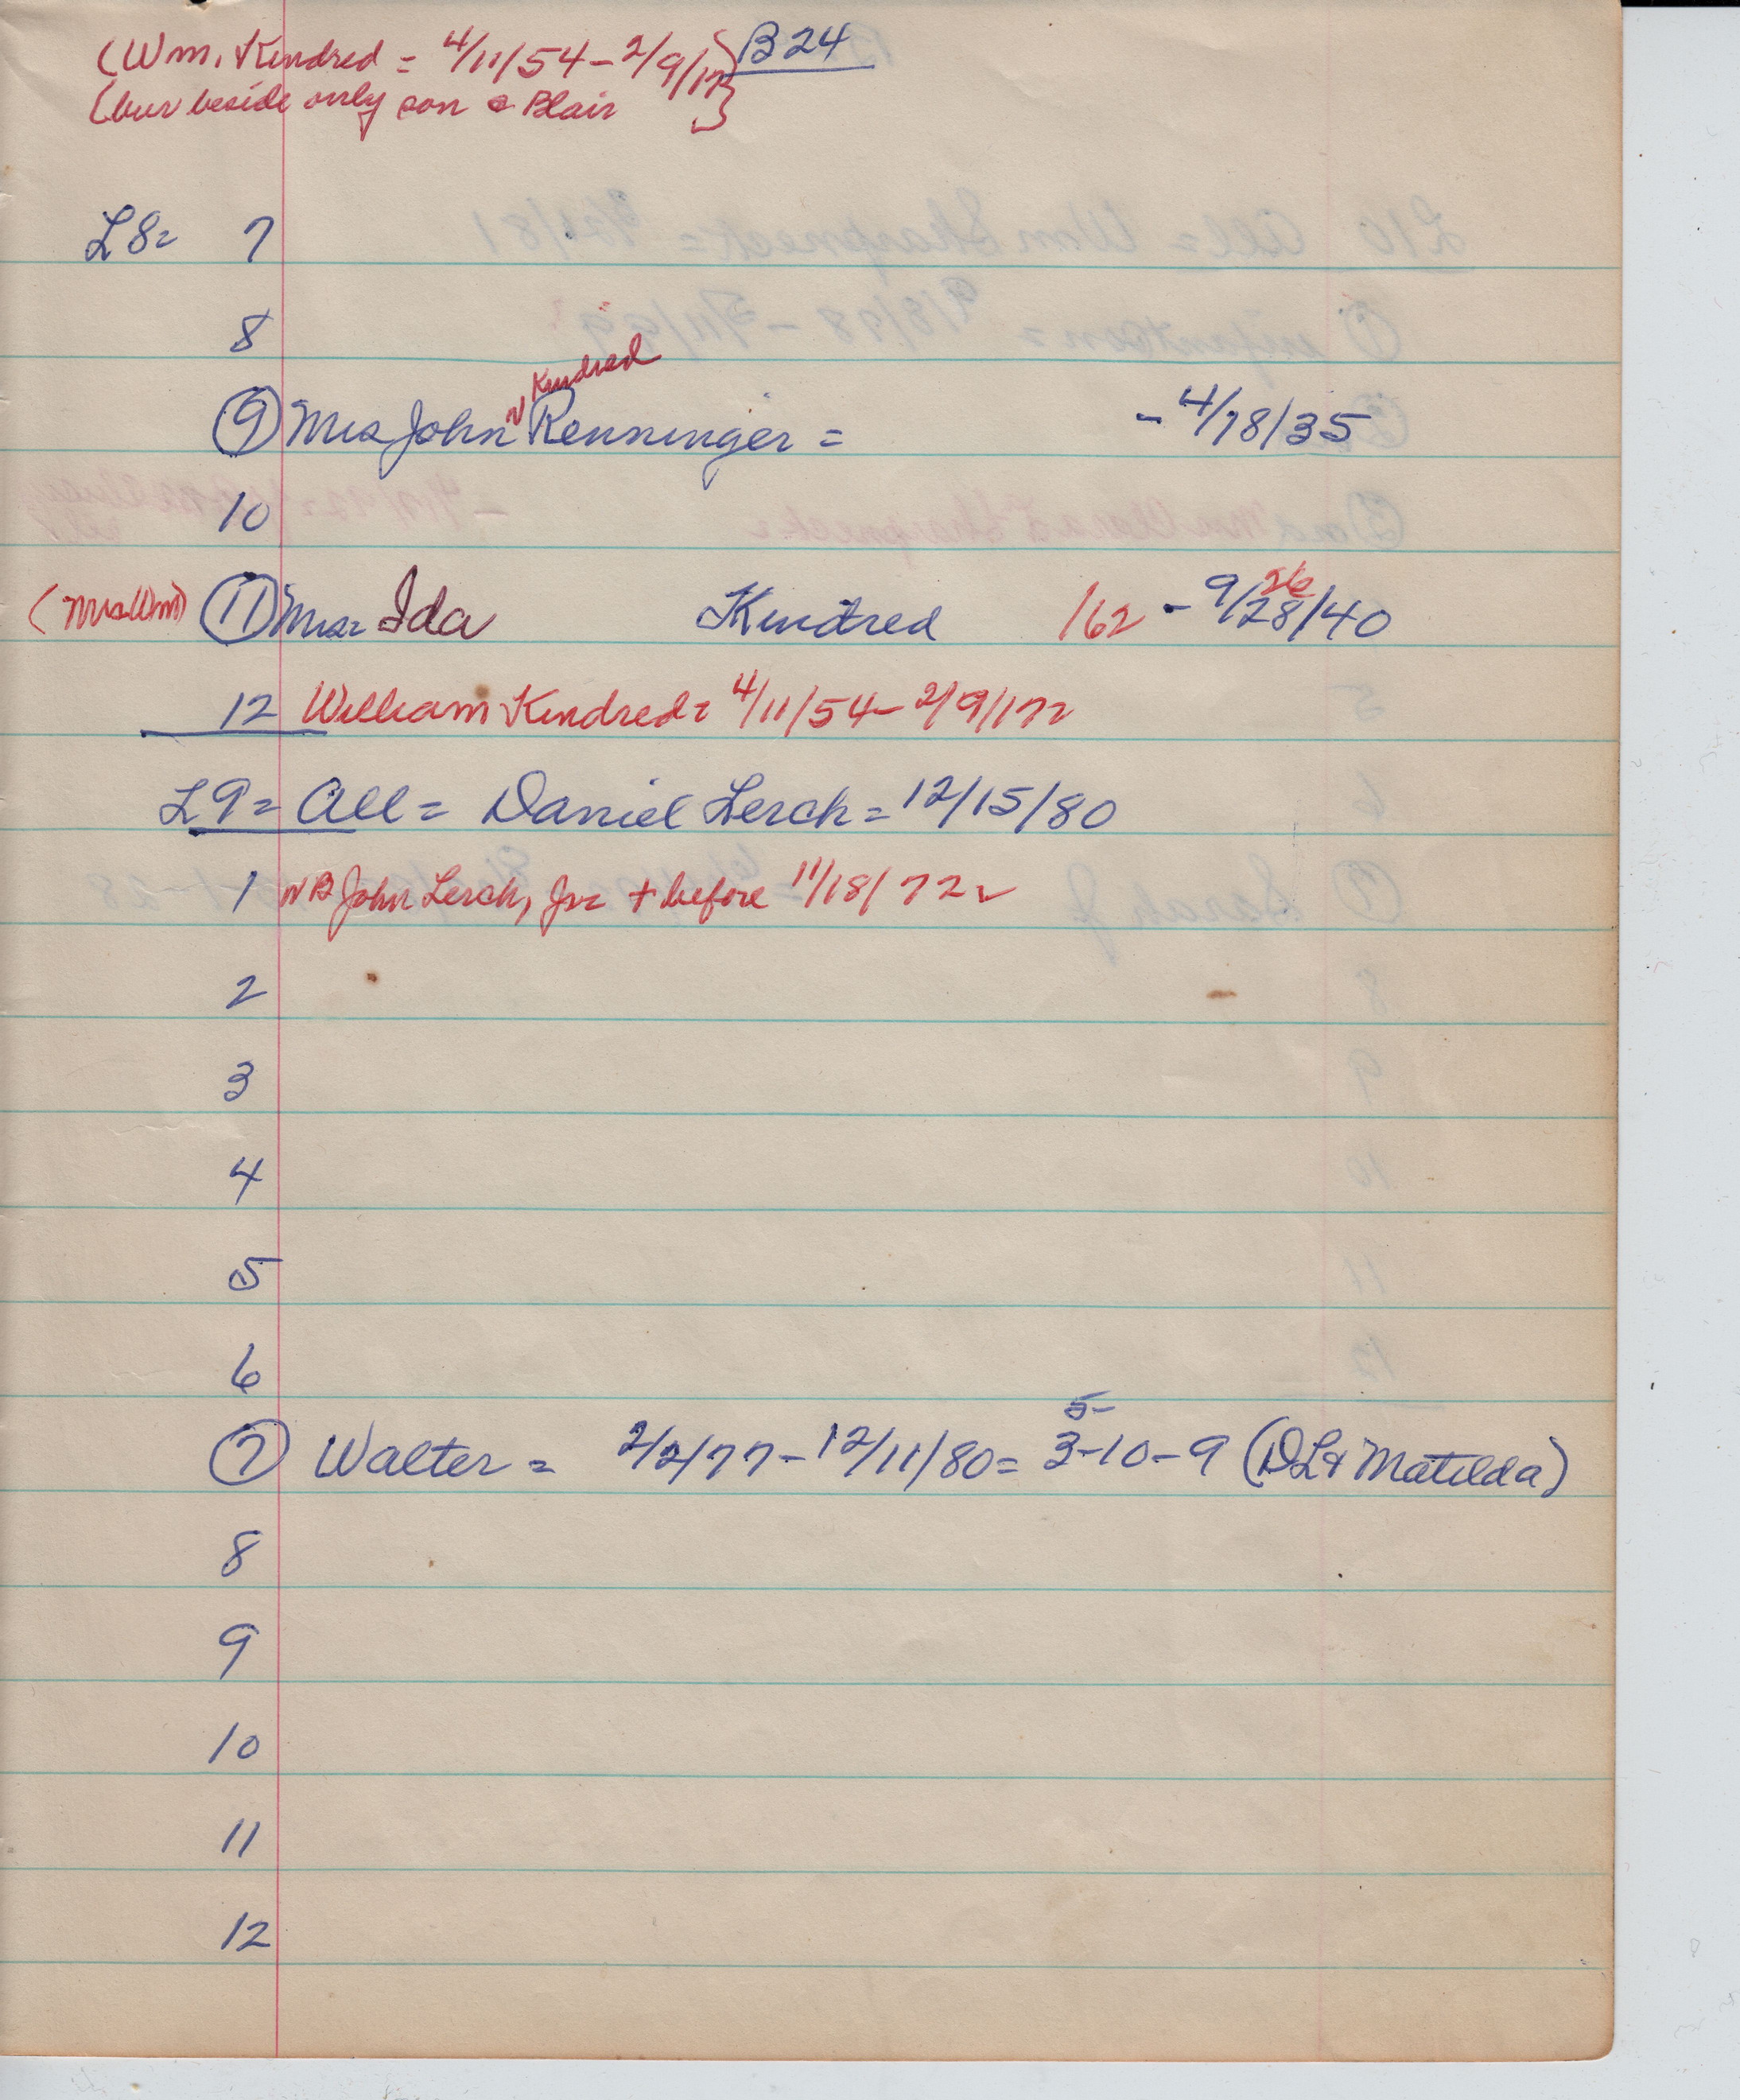 (Wm. Kindred = 4/11/54 - 2/9/17) B24
(bur beside only son Blair }
L8= 7
8
Kindred
9 Mrs John v Renninger = - 4/18/35
10
26
(Mrs Wm) 11 Mrs= Ida Kindred /62 - 9/28/40
12 William Kindred= 4/11/54 - 2/9/17=
L9= All = Daniel Lerch = 12/15/80
1 NB John Lerch, Jr= + before 11/18/72
2
3
4
5
6
5-
7 Walter = 2/2/77 - 12/11/80 = 3-10-9 (DL & Matilda)
8
9
10
11
12